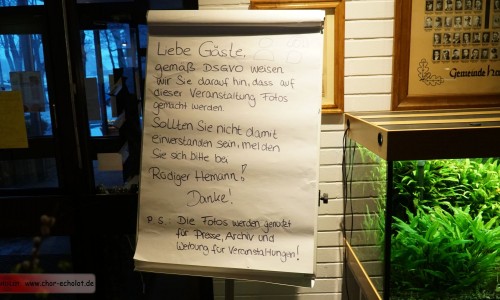 Liebe Gäste,
gemäß DSGVO weisen
wir Sie darauf hin, dass auf
dieser Veranstaltung Fotos
gemacht werden.
Sollten Sie nicht damit
einverstanden sein, melden
Sie sich bitte bei
Rüdiger Hemann!
Danke!
P.S.: Die Fotos werden genutzt
für Presse, Archiv und
Werbung für Veranstaltungen!
Gemeinde
www.chor-echolot.de